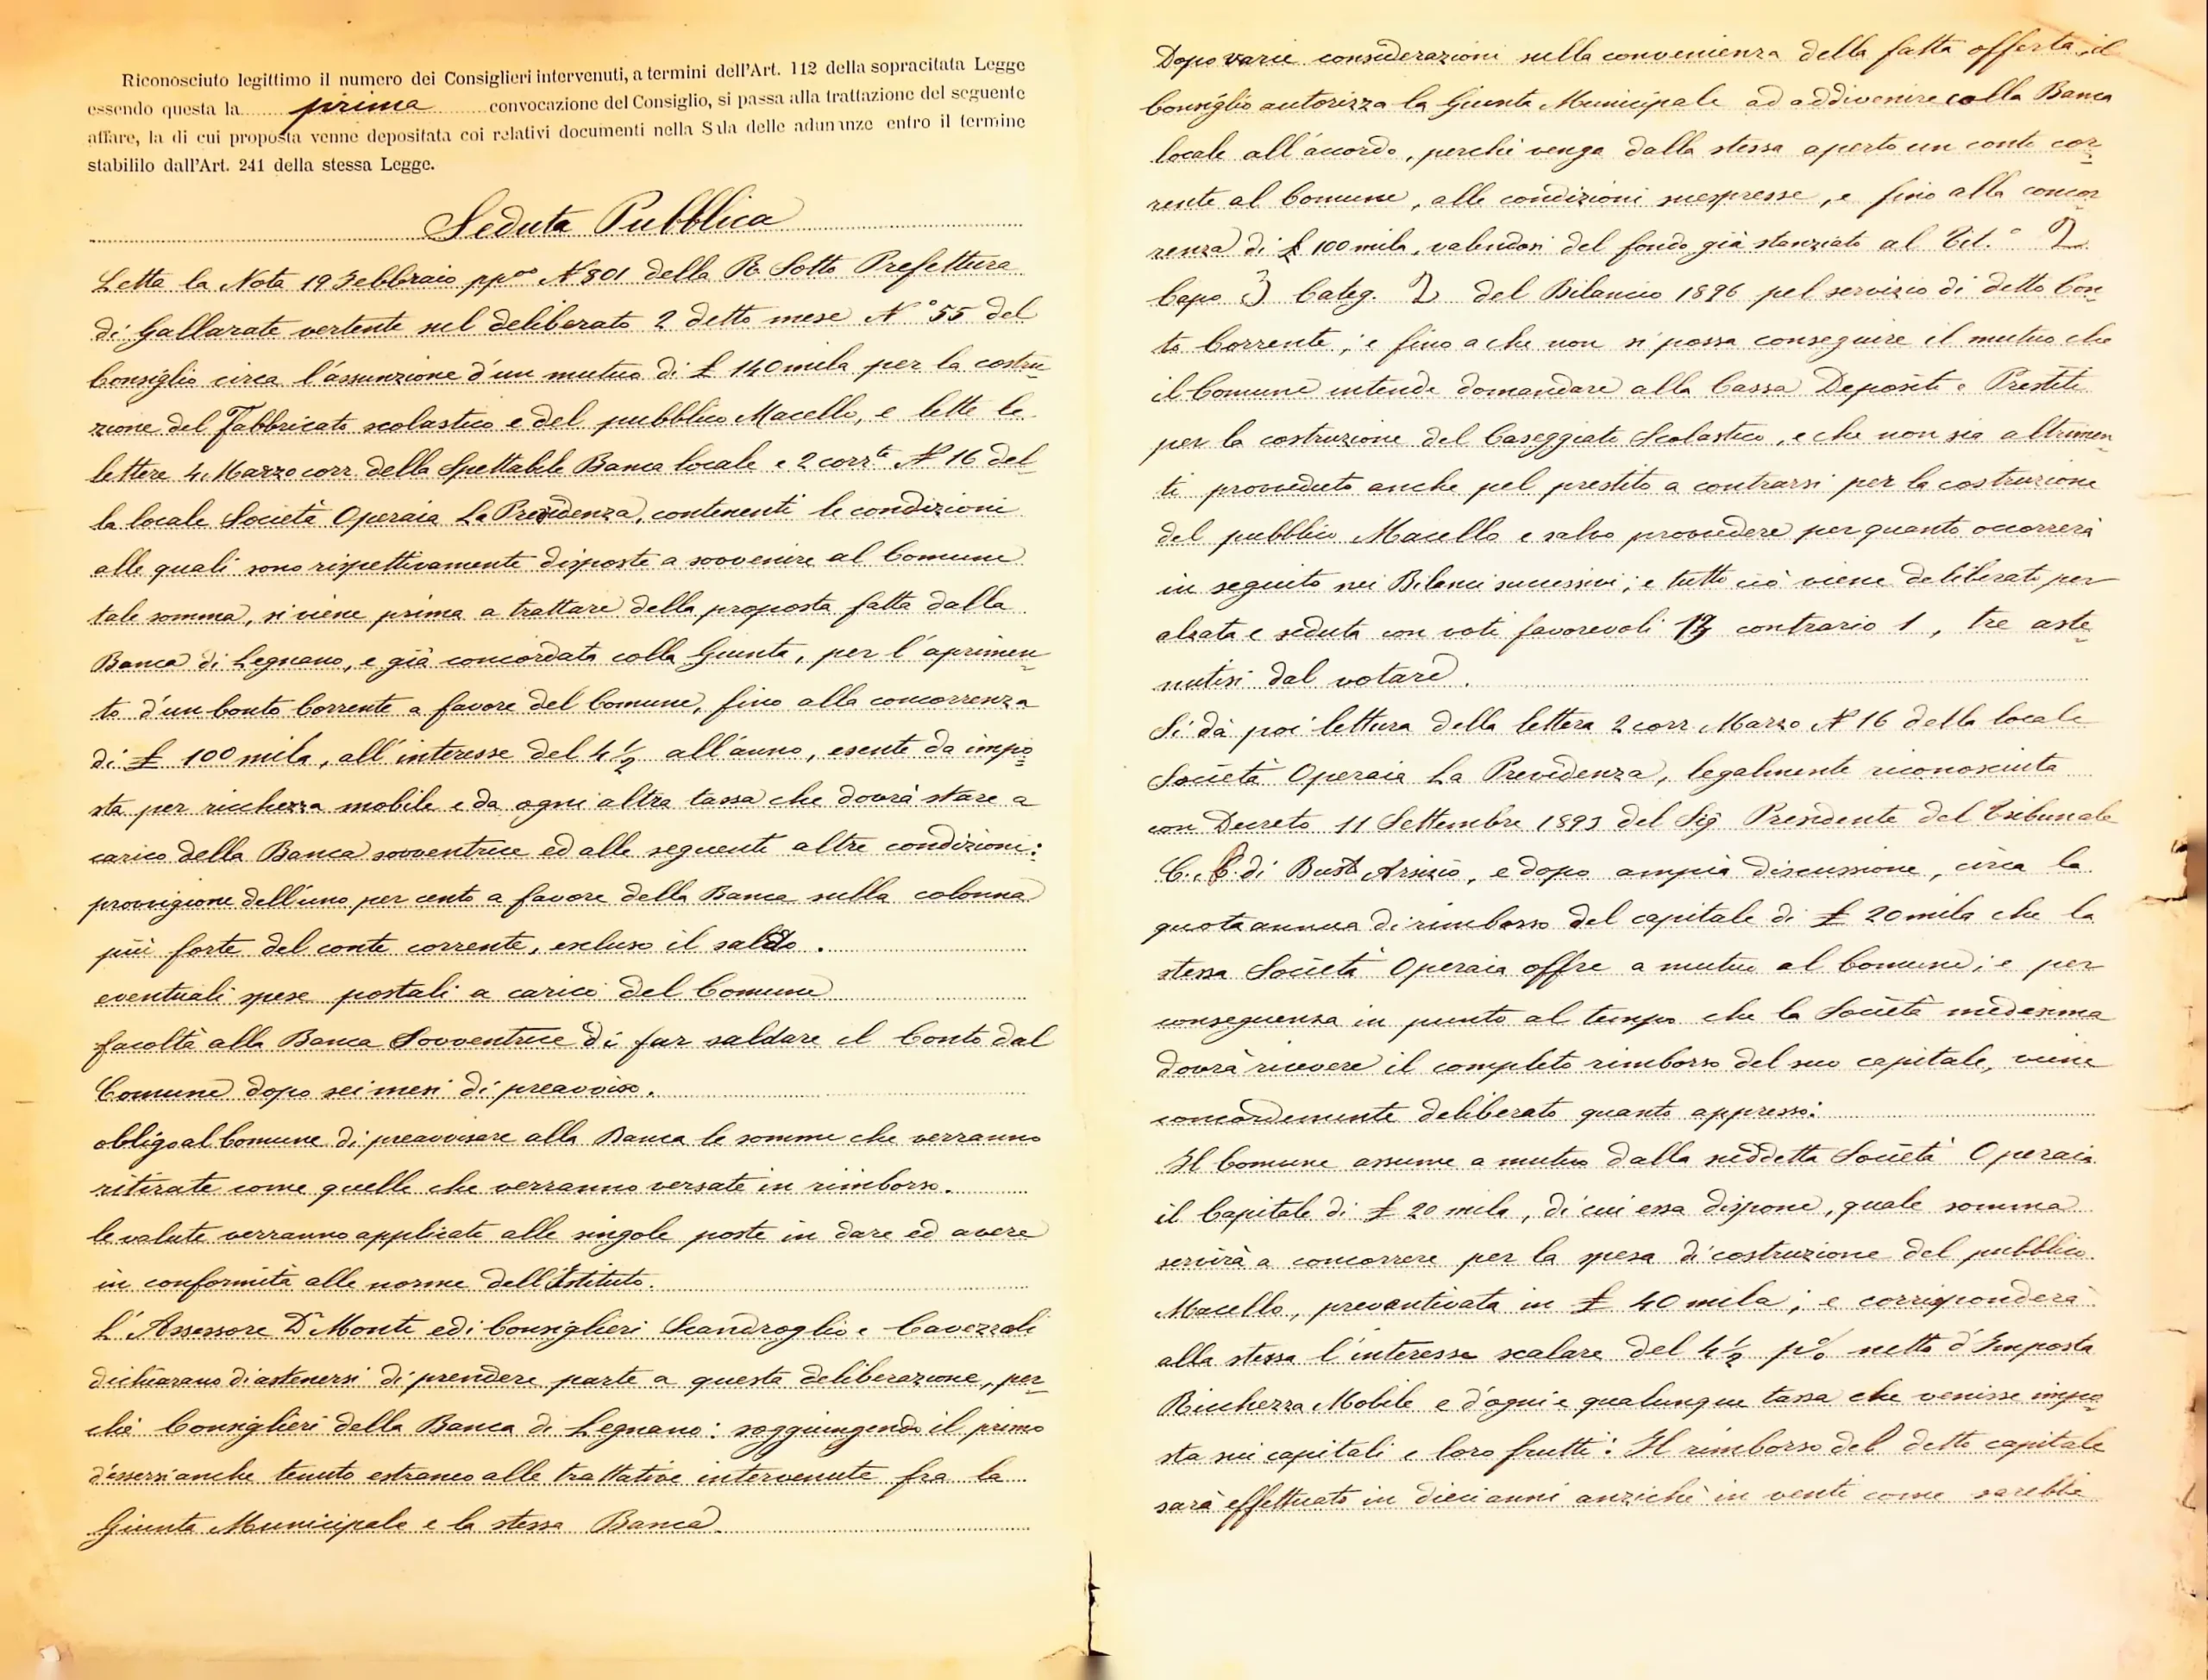 Riconosciuto legittimo il numero dei Consiglieri intervenuti, a termini dell'Art. 112 della sopracitata Legge
essendo questa la prima convocazione del Consiglio, si passa alla trattazione del seguente
affare, la di cui proposta venne depositata coi relativi documenti nella Sala delle adunanze entro il termine
stabililo dall'Art. 241 della stessa Legge.
Seduta Pubblica
Letta la Nota 19 Febbraio pp.° N° 801 della R. Sotto Prefettura
di Gallarate vertente sul deliberato 2 detto mese N° 55 del
Consiglio circa l'assunzione d'un mutuo di £ 140 mila per la costru-
zione del Fabbricato scolastico e del pubblico Macello, e lette le
lettere 4 Marzo corr. della Spettabile Banca locale e 2 corr.te N° 16 del-
la locale Società Operaia La Previdenza, contenenti le condizioni
alle quali sono rispettivamente disposte a sovvenire al Comune
tale somma, si viene prima a trattare della proposta fatta dalla
Banca di Legnano, e già concordata colla Giunta, per l'aprimen-
to d'un Conto Corrente a favore del Comune, fino alla concorrenza
di £ 100 mila, all'interesse del 4 ½ all'anno, esente da impo-
sta per ricchezza mobile e da ogni altra tassa che dovrà stare a
carico della Banca sovventrice ed alle seguenti altre condizioni:
provvigione dell'uno per cento a favore della Banca sulla colonna
più forte del conto corrente, escluso il saldo.
eventuali spese postali a carico del Comune
facoltà alla Banca Sovventrice di far saldare il Conto dal
Comune dopo sei mesi di preavviso.
obbligo al Comune di preavvisare alla Banca le somme che verranno
ritirate come quelle che verranno versate in rimborso.
le valute verranno applicate alle singole poste in dare ed avere
in conformità alle norme dell'Istituto.
L'Assessore Dr Monti ed i Consiglieri Scandroglio e Cavezzali
dichiarano di astenersi di prendere parte a questa deliberazione, per-
chè Consiglieri della Banca di Legnano: soggiungendo il primo
d'essersi anche tenuto estraneo alle trattative intervenute fra la
Giunta Municipale e la stessa Banca.
Dopo varie considerazioni sulla convenienza della fatta offerta, il
Consiglio autorizza la Giunta Municipale ad addivenire colla Banca
locale all'accordo, perchè venga dalla stessa aperto un conto cor-
rente al Comune, alle condizioni suespresse, e fino alla concor-
renza di £ 100 mila, valendosi del fondo già stanziato al Tit.° 2
Capo 3 Categ. 2 del Bilancio 1896 pel servizio di detto Con-
to Corrente; e fino a che non si possa conseguire il mutuo che
il Comune intende domandare alla Cassa Depositi e Prestiti
per la costruzione del Caseggiato Scolastico, e che non sia altrimen-
ti provveduto anche pel prestito a contrarsi per la costruzione
del pubblico Macello e salvo provvedere per quanto occorrerà
in seguito nei Bilanci successivi; e tutto ciò viene deliberato per
alzata e seduta con voti favorevoli 13 contrario 1, tre aste-
nutisi dal votare.
Si dà poi lettura della lettera 2 corr Marzo N° 16 della locale
Società Operaia La Previdenza, legalmente riconosciuta
con Decreto 11 Settembre 1893 del Sig Presidente del Tribunale
C. P. di Busto Arsizio, e dopo ampia discussione, circa la
quota annua di rimborso del capitale di £ 20 mila che la
stessa Società Operaia offre a mutuo al Comune; e per
conseguenza in punto al tempo che la Società medesima
dovrà ricevere il completo rimborso del suo capitale, viene
concordemente deliberato quanto appresso:
Il Comune assume a mutuo dalla suddetta Società Operaia
il Capitale di £ 20 mila, di cui essa dispone, quale somma
servirà a concorrere per la spesa di costruzione del pubblico
Macello, preventivata in £ 40 mila; e corrisponderà
alla stessa l'interesse scalare del 4 ½ p% netto d'Imposta
Ricchezza Mobile e d'ogni e qualunque tassa che venisse impo-
sta sui capitali e loro frutti: Il rimborso del detto capitale
sarà effettuato in dieci anni anzichè in venti come sarebbe